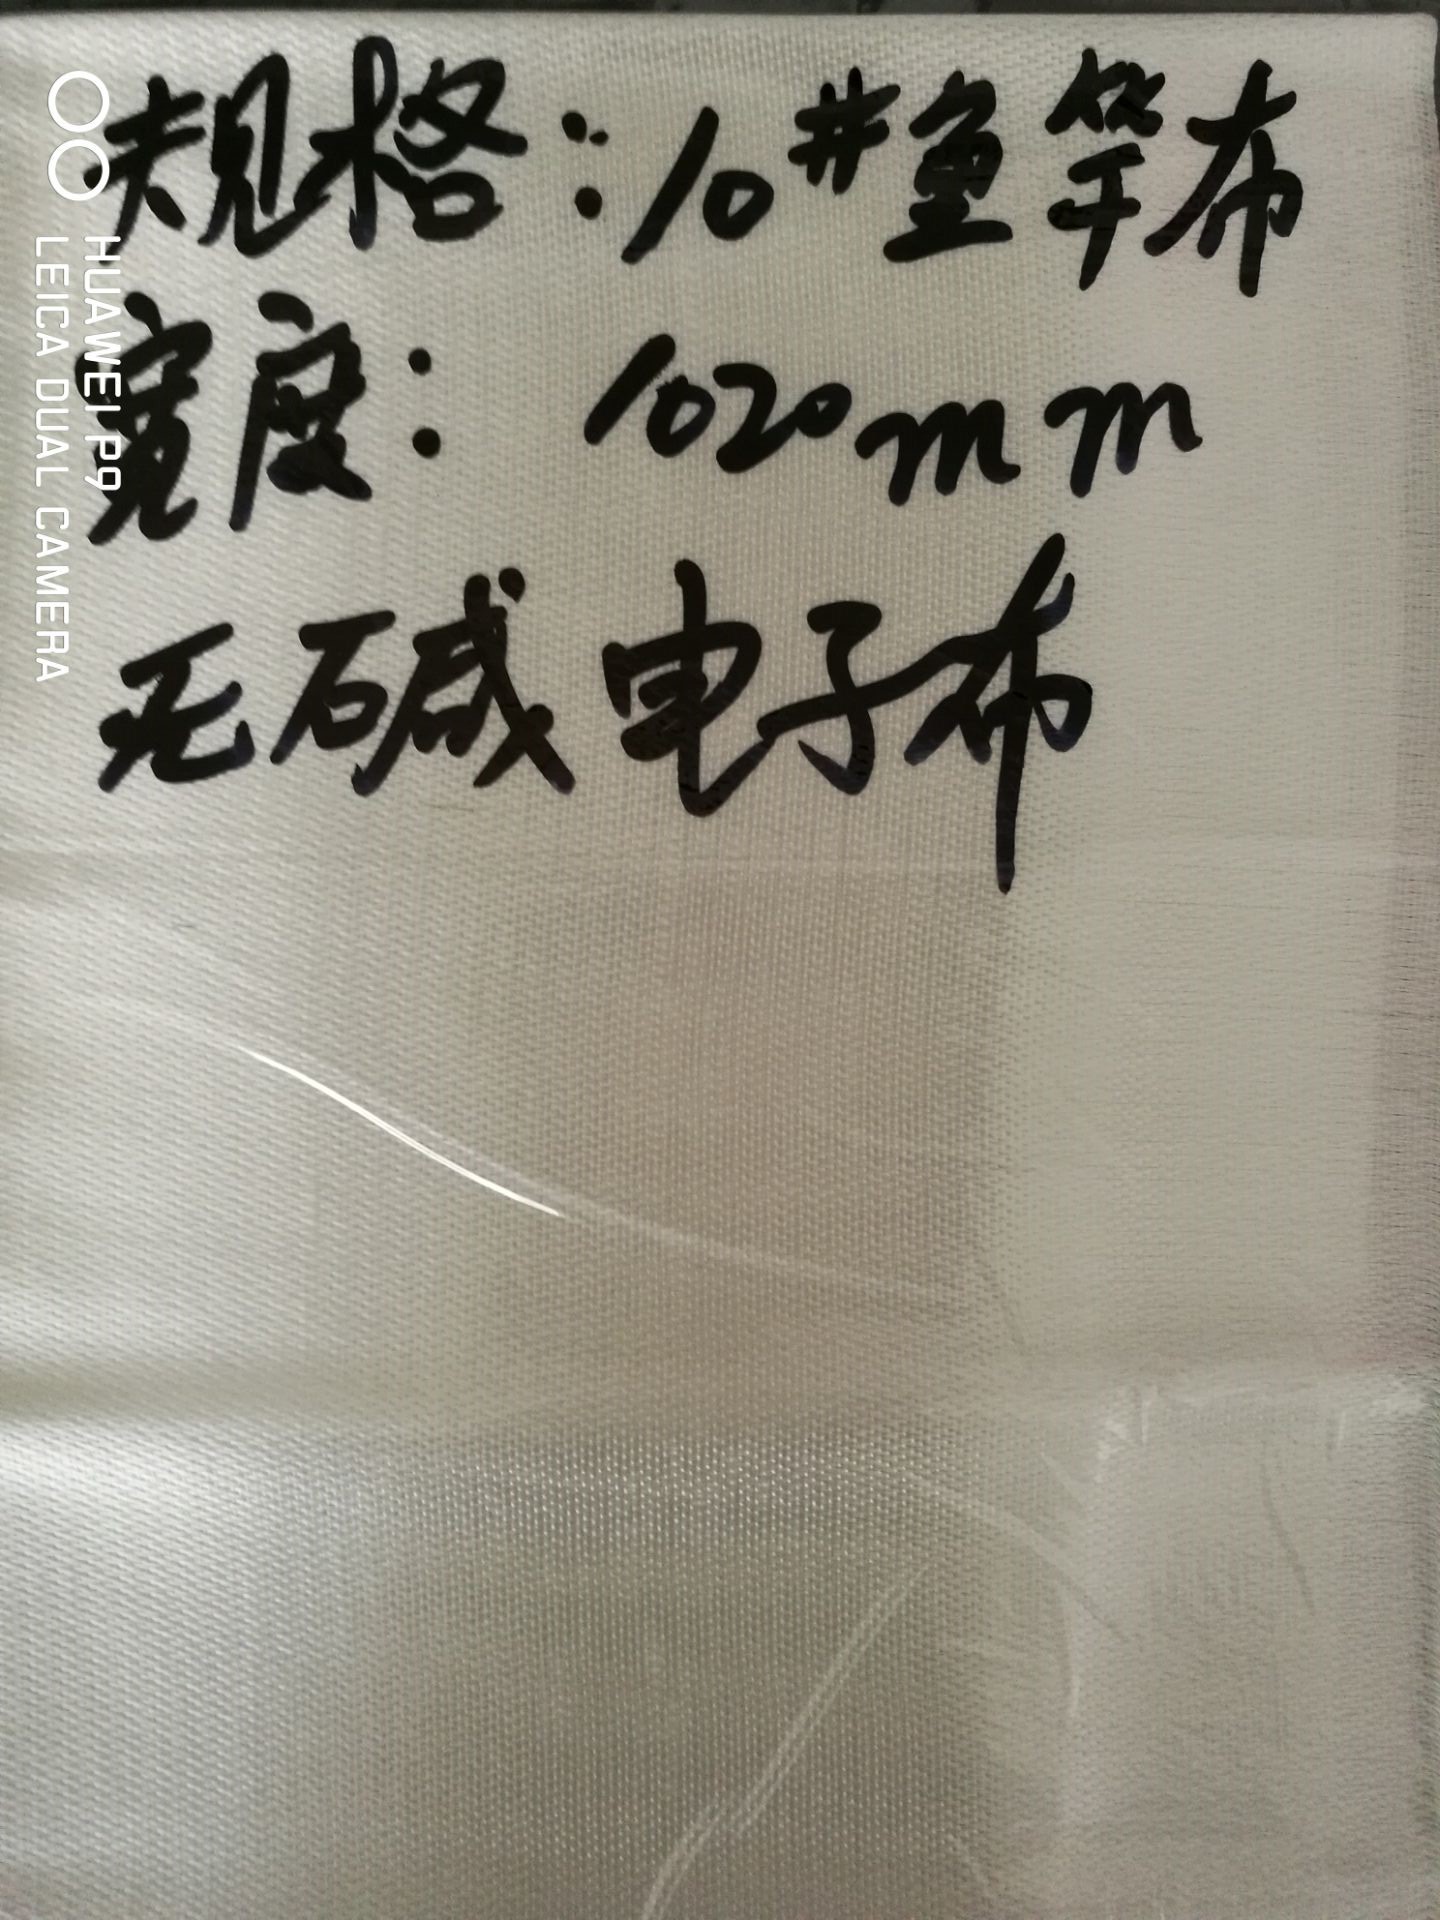 规格:10#鱼竿布
宽度:1020mm
无碱电子布
HUAWEI P9
LEICA DUAL CAMERA